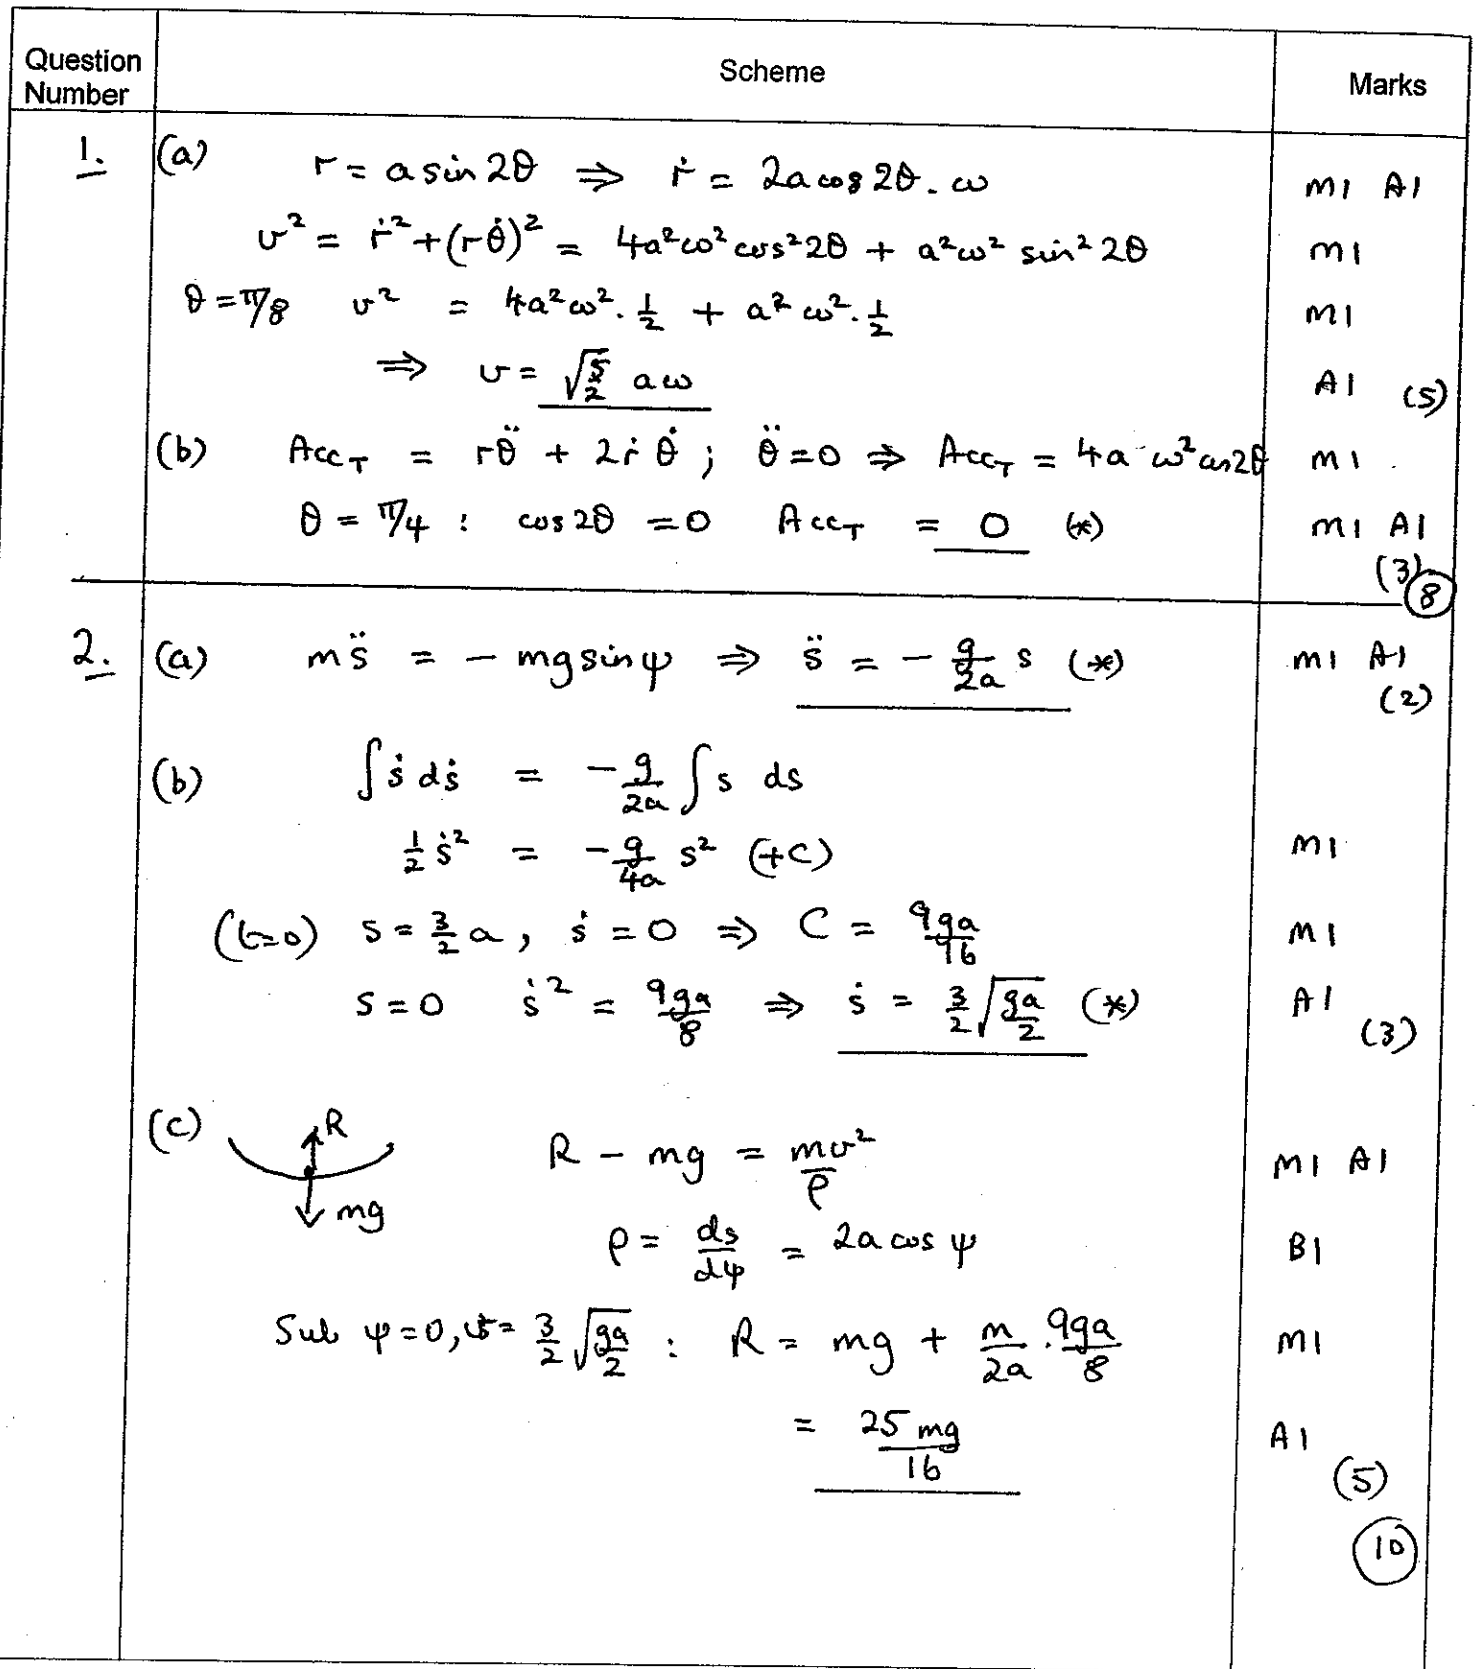 Question Number Scheme Marks
1. (a) r = a sin 2θ ⇒ ṙ = 2a cos 2θ . ω M1 A1
v² = ṙ² + (rθ̇)² = 4a²ω² cos² 2θ + a²ω² sin² 2θ M1
θ = π/8 v² = 4a²ω² . 1/2 + a²ω² . 1/2 M1
⇒ v = √(5/2) aω A1 (5)
(b) Acc_T = rθ̈ + 2ṙθ̇ ; θ̈ = 0 ⇒ Acc_T = 4a ω² cos 2θ M1
θ = π/4 : cos 2θ = 0 Acc_T = 0 (*) M1 A1
(3) (8)
2. (a) m s̈ = − mg sin ψ ⇒ s̈ = − g/2a s (*) M1 A1
(2)
(b) ∫ ṡ dṡ = − g/2a ∫ s ds
1/2 ṡ² = − g/4a s² (+C) M1
(t=0) s = 3/2 a, ṡ = 0 ⇒ C = 9ga/16 M1
s = 0 ṡ² = 9ga/8 ⇒ ṡ = 3/2 √(ga/2) (*) A1
(3)
(c) R R − mg = mv²/ρ M1 A1
mg
ρ = ds/dψ = 2a cos ψ B1
Sub ψ = 0, v = 3/2 √(ga/2) : R = mg + m/2a . 9ga/8 M1
= 25 mg/16 A1
(5)
(10)